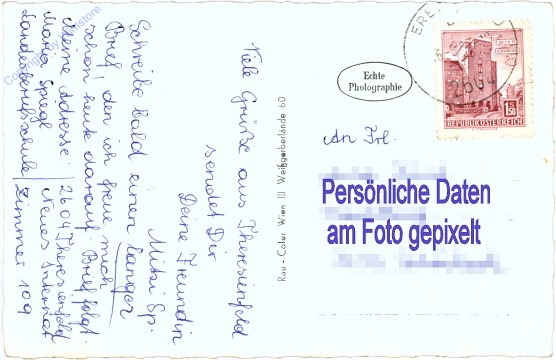 Viele Grüße aus Theresienfeld
sendet Dir
Deine Freundin
Mitzi Sp.
Schreibe bald einen langen
Brief, den ich freue mich
schon heute darauf. Brief folgt.
Meine Adresse: 2604 Theresienfeld
Maria Spiegl Neues Internat
Landesberufsschule / Zimmer 109
Rau - Color Wien III Weißgerberlände 60
Echte
Photographie
WIEN
1.50
REPUBLIK ÖSTERREICH
2601
An Frl.
Persönliche Daten
am Foto gepixelt